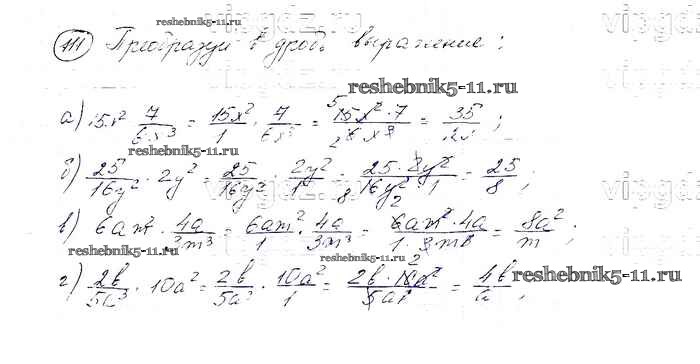 reshebnik5-11.ru
111 Преобразуи в дробь выражение:
vipgdz.ru
reshebnik5-11.ru
а) 15x² · 7/6x³ = 15x²/1 · 7/6x³ = 15x² · 7/6x³ = 35/2x ;
reshebnik5-11.ru
б) 25/16y² · 2y² = 25/16y² · 2y²/1 = 25 · 2y²/16y² · 1 = 25/8 ;
в) 6am² · 4a/3m³ = 6am²/1 · 4a/3m³ = 6am² · 4a/1 · 3m³ = 8a²/m ;
reshebnik5-11.ru
reshebnik5-11.ru
г) 2b/5a³ · 10a² = 2b/5a³ · 10a²/1 = 2b · 10a²/5a³ = 4b/a ;
reshebnik5-11.ru